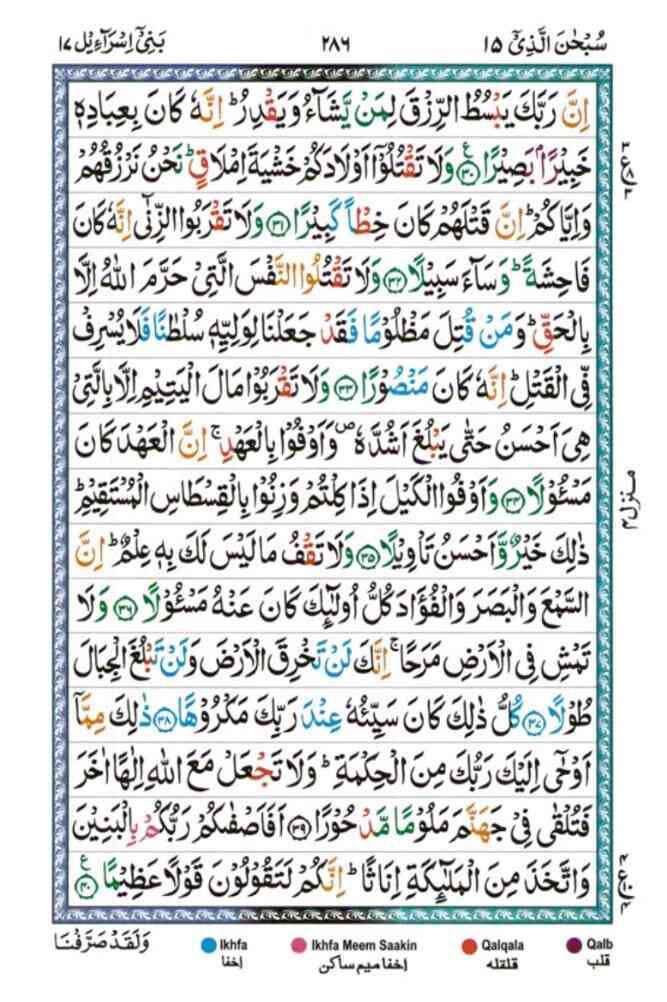 سُبْحٰنَ الَّذِیْۤ ١٥
٢٨٦
بَنِیْۤ اِسْرَآءِیْل ١٧
اِنَّ رَبَّكَ یَبْسُطُ الرِّزْقَ لِمَنْ یَّشَآءُ وَیَقْدِرُ ؕ اِنَّهٗ كَانَ بِعِبَادِهٖ
خَبِیْرًۢا بَصِیْرًا ﴿٣٠﴾ ع وَلَا تَقْتُلُوْۤا اَوْلَادَكُمْ خَشْیَةَ اِمْلَاقٍ ؕ نَحْنُ نَرْزُقُهُمْ
وَاِیَّاكُمْ ؕ اِنَّ قَتْلَهُمْ كَانَ خِطْاً كَبِیْرًا ﴿٣١﴾ وَلَا تَقْرَبُوا الزِّنٰۤی اِنَّهٗ كَانَ
فَاحِشَةً ؕ وَسَآءَ سَبِیْلًا ﴿٣٢﴾ وَلَا تَقْتُلُوا النَّفْسَ الَّتِیْ حَرَّمَ اللّٰهُ اِلَّا
بِالْحَقِّ ؕ وَمَنْ قُتِلَ مَظْلُوْمًا فَقَدْ جَعَلْنَا لِوَلِیِّهٖ سُلْطٰنًا فَلَا یُسْرِفْ
فِّی الْقَتْلِ ؕ اِنَّهٗ كَانَ مَنْصُوْرًا ﴿٣٣﴾ وَلَا تَقْرَبُوْا مَالَ الْیَتِیْمِ اِلَّا بِالَّتِیْ
هِیَ اَحْسَنُ حَتّٰی یَبْلُغَ اَشُدَّهٗ ۪ وَاَوْفُوْا بِالْعَهْدِ ۚ اِنَّ الْعَهْدَ كَانَ
مَسْـُٔوْلًا ﴿٣٤﴾ وَاَوْفُوا الْكَیْلَ اِذَا كِلْتُمْ وَزِنُوْا بِالْقِسْطَاسِ الْمُسْتَقِیْمِ ؕ
ذٰلِكَ خَیْرٌ وَّاَحْسَنُ تَاْوِیْلًا ﴿٣٥﴾ وَلَا تَقْفُ مَا لَیْسَ لَكَ بِهٖ عِلْمٌ ؕ اِنَّ
السَّمْعَ وَالْبَصَرَ وَالْفُؤَادَ كُلُّ اُولٰٓىِٕكَ كَانَ عَنْهُ مَسْـُٔوْلًا ﴿٣٦﴾ وَلَا
تَمْشِ فِی الْاَرْضِ مَرَحًا ۚ اِنَّكَ لَنْ تَخْرِقَ الْاَرْضَ وَلَنْ تَبْلُغَ الْجِبَالَ
طُوْلًا ﴿٣٧﴾ كُلُّ ذٰلِكَ كَانَ سَیِّئُهٗ عِنْدَ رَبِّكَ مَكْرُوْهًا ﴿٣٨﴾ ذٰلِكَ مِمَّاۤ
اَوْحٰۤی اِلَیْكَ رَبُّكَ مِنَ الْحِكْمَةِ ؕ وَلَا تَجْعَلْ مَعَ اللّٰهِ اِلٰهًا اٰخَرَ
فَتُلْقٰی فِیْ جَهَنَّمَ مَلُوْمًا مَّدْحُوْرًا ﴿٣٩﴾ اَفَاَصْفٰىكُمْ رَبُّكُمْ بِالْبَنِیْنَ
وَاتَّخَذَ مِنَ الْمَلٰٓىِٕكَةِ اِنَاثًا ؕ اِنَّكُمْ لَتَقُوْلُوْنَ قَوْلًا عَظِیْمًا ﴿٤٠﴾ ع
منزل ٤
وَلَقَدْ صَرَّفْنَا
Ikhfa
اخفا
Ikhfa Meem Saakin
اخفا میم ساكن
Qalqala
قلقله
Qalb
قلب